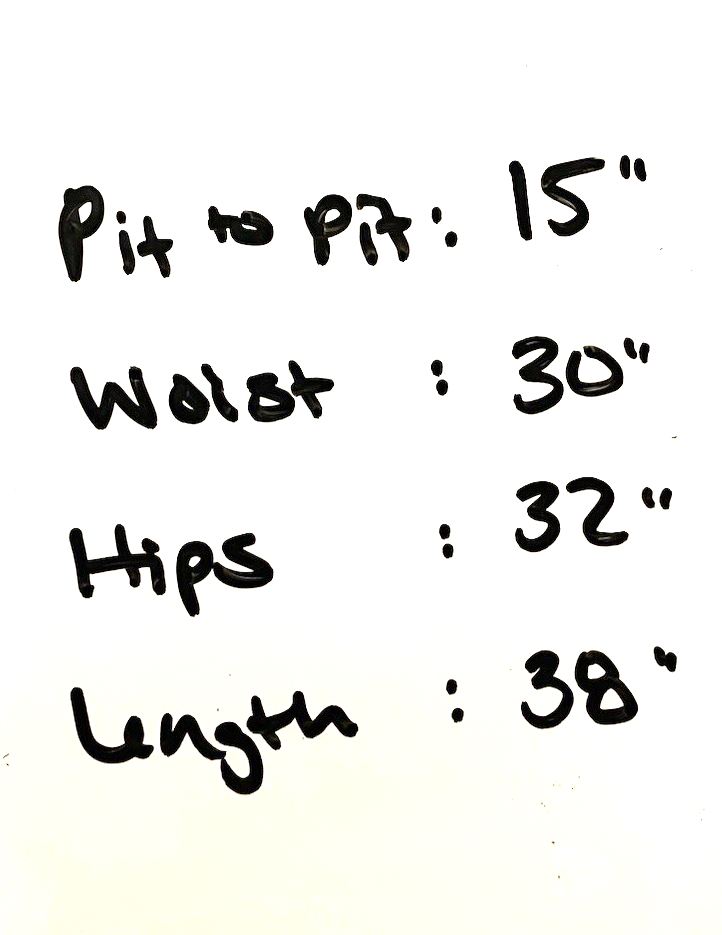 Pit to Pit: 15"
Waist : 30"
Hips : 32"
Length : 38"